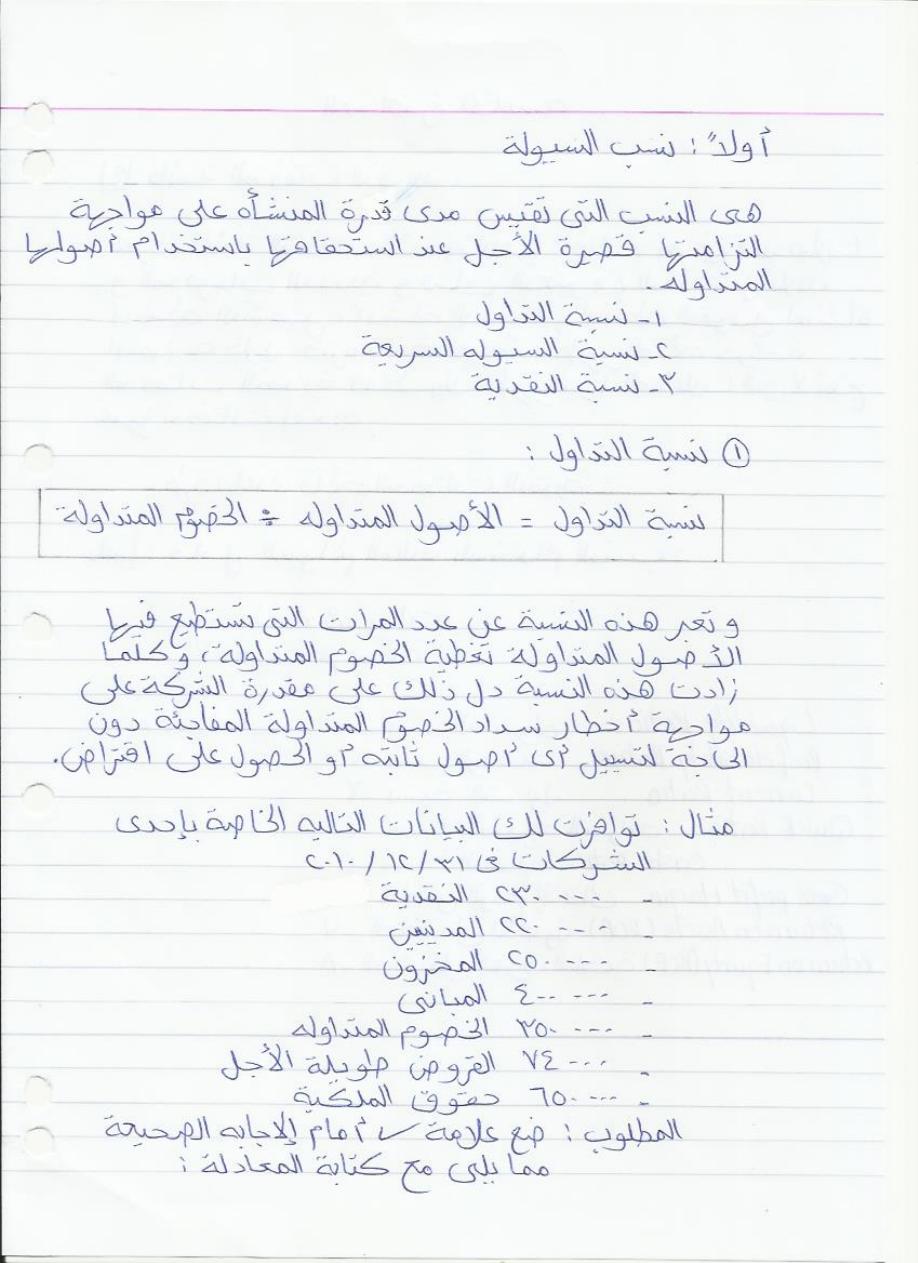 أولاً : نسب السيولة
هى النسب التى تقيس مدى قدرة المنشأه على مواجهة
التزامتها قصيرة الأجل عند استحقاقها باستخدام أصولها
المتداوله .
١- نسبة التداول
٢- نسبة السيوله السريعة
٣- نسبة النقدية
① نسبة التداول :
نسبة التداول = الأصول المتداوله ÷ الخصوم المتداولة
و تعبر هذه النسبة عن عدد المرات التى تستطيع فيها
الأصول المتداولة تغطية الخصوم المتداولة، وكلما
زادت هذه النسبة دل ذلك على مقدرة الشركة على
مواجهة أخطار سداد الخصوم المتداولة المفاجئة دون
الحاجة لتسييل أى أصول ثابته أو الحصول على اقتراض.
مثال : توافرت لك البيانات التاليه الخاصة بإحدى
الشركات فى ٣١/ ١٢/ ٢٠١٠
- ٢٣٠٠٠٠ النقدية
- ٢٢٠٠٠٠ المدينين
- ٢٥٠٠٠٠ المخزون
- ٤٠٠٠٠٠ المبانى
- ٣٥٠٠٠٠ الخصوم المتداوله
- ٧٤٠٠٠ القروض طويلة الأجل
- ٦٥٠٠٠٠ حقوق الملكية
المطلوب : ضع علامة ✓ أمام الإجابه الصحيحة
مما يلى مع كتابة المعادلة :